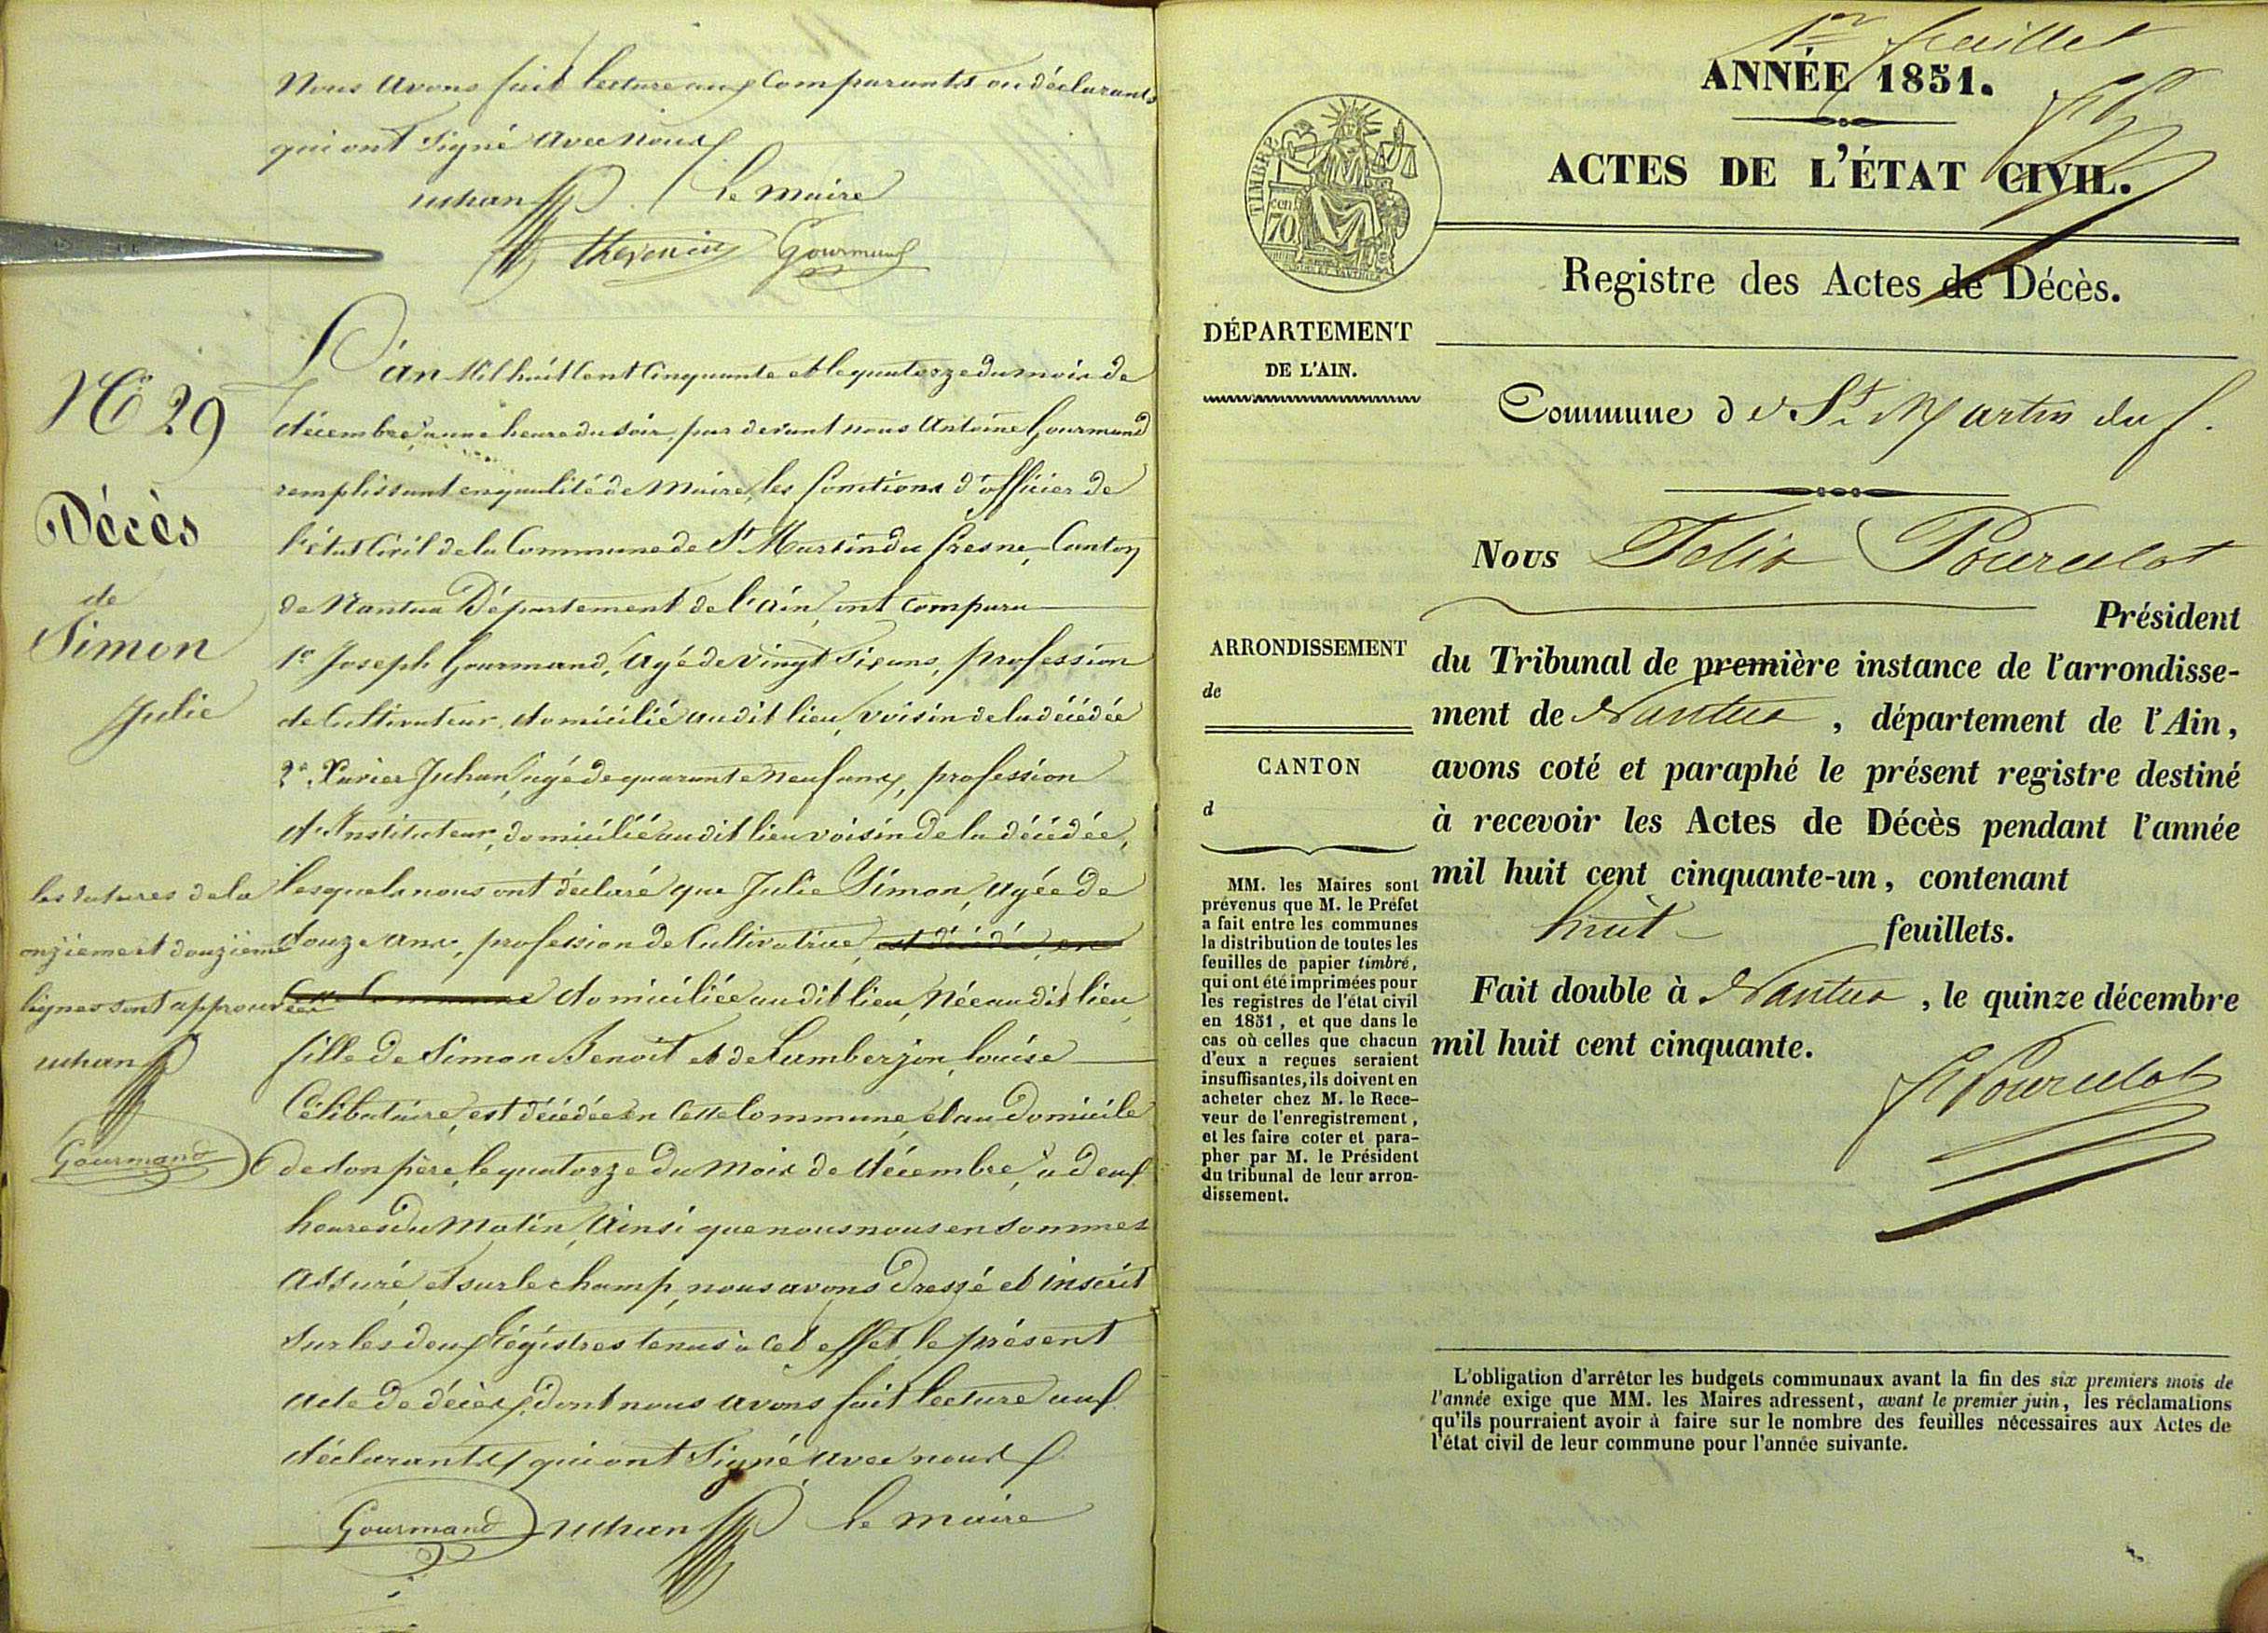 Nous avons fait lecture aux comparants ou déclarants
qui ont signé avec nous
juhan Le maire
thevenin Gourmand
No 29
Décès
de
Simon
Julie
L'an Mil huit cent Cinquante et le quatorze du mois de
décembre, à une heure du soir, par devant nous Antoine Gourmand
remplissant en quallité de Maire, les fonctions d'officier de
l'état Civil de la Commune de St Martin du fresne, Canton
de Nantua Département de l'ain, ont comparu
1o Joseph Gourmand, agé de vingt six ans, profession
de Cultivateur, domicilié audit lieu, voisin de la décédée
2o Xavier Juhan, agé de quarante neuf ans, profession
d'Instituteur, domicilié audit lieu voisin de la décédée,
lesquels nous ont déclaré que Julie Simon, agée de
douze ans, profession de Cultivatrice, est décédée, en
Cette Commune domiciliée audit lieu, Née audit lieu,
fille de Simon Benoit et de Lumberjon, Louise
Célibataire, est décédée en Cette Commune, et au domicile
de son père, le quatorze du mois de décembre, à deux
heures du Matin, Ainsi que nous nous en sommes
assuré, et sur le champ, nous avons dressé et inscrit
sur les deux régistres tenus à cet effet, le présent
acte de décès, dont nous avons fait lecture aux
déclarants, qui ont Signé avec nous
Gourmand juhan Le maire
les ratures de la
onzième et douzième
lignes sont approuvées
juhan
Gourmand
1er feuillet
FP
ANNÉE 1851.
ACTES DE L'ÉTAT CIVIL.
Registre des Actes de Décès.
TIMBRE
cent
70
DÉPARTEMENT
DE L'AIN.
Commune de St Martin du f.
Nous Félix Pourcelot
Président
du Tribunal de première instance de l'arrondisse-
ment de Nantua, département de l'Ain,
avons coté et paraphé le présent registre destiné
à recevoir les Actes de Décès pendant l'année
mil huit cent cinquante-un, contenant
huit feuillets.
Fait double à Nantua, le quinze décembre
mil huit cent cinquante.
F Pourcelot
ARRONDISSEMENT
de
CANTON
d
MM. les Maires sont
prévenus que M. le Préfet
a fait entre les communes
la distribution de toutes les
feuilles de papier timbré,
qui ont été imprimées pour
les registres de l'état civil
en 1851, et que dans le
cas où celles que chacun
d'eux a reçues seraient
insuffisantes, ils doivent en
acheter chez M. le Rece-
veur de l'enregistrement,
et les faire coter et para-
pher par M. le Président
du tribunal de leur arron-
dissement.
L'obligation d'arrêter les budgets communaux avant la fin des six premiers mois de
l'année exige que MM. les Maires adressent, avant le premier juin, les réclamations
qu'ils pourraient avoir à faire sur le nombre des feuilles nécessaires aux Actes de
l'état civil de leur commune pour l'année suivante.